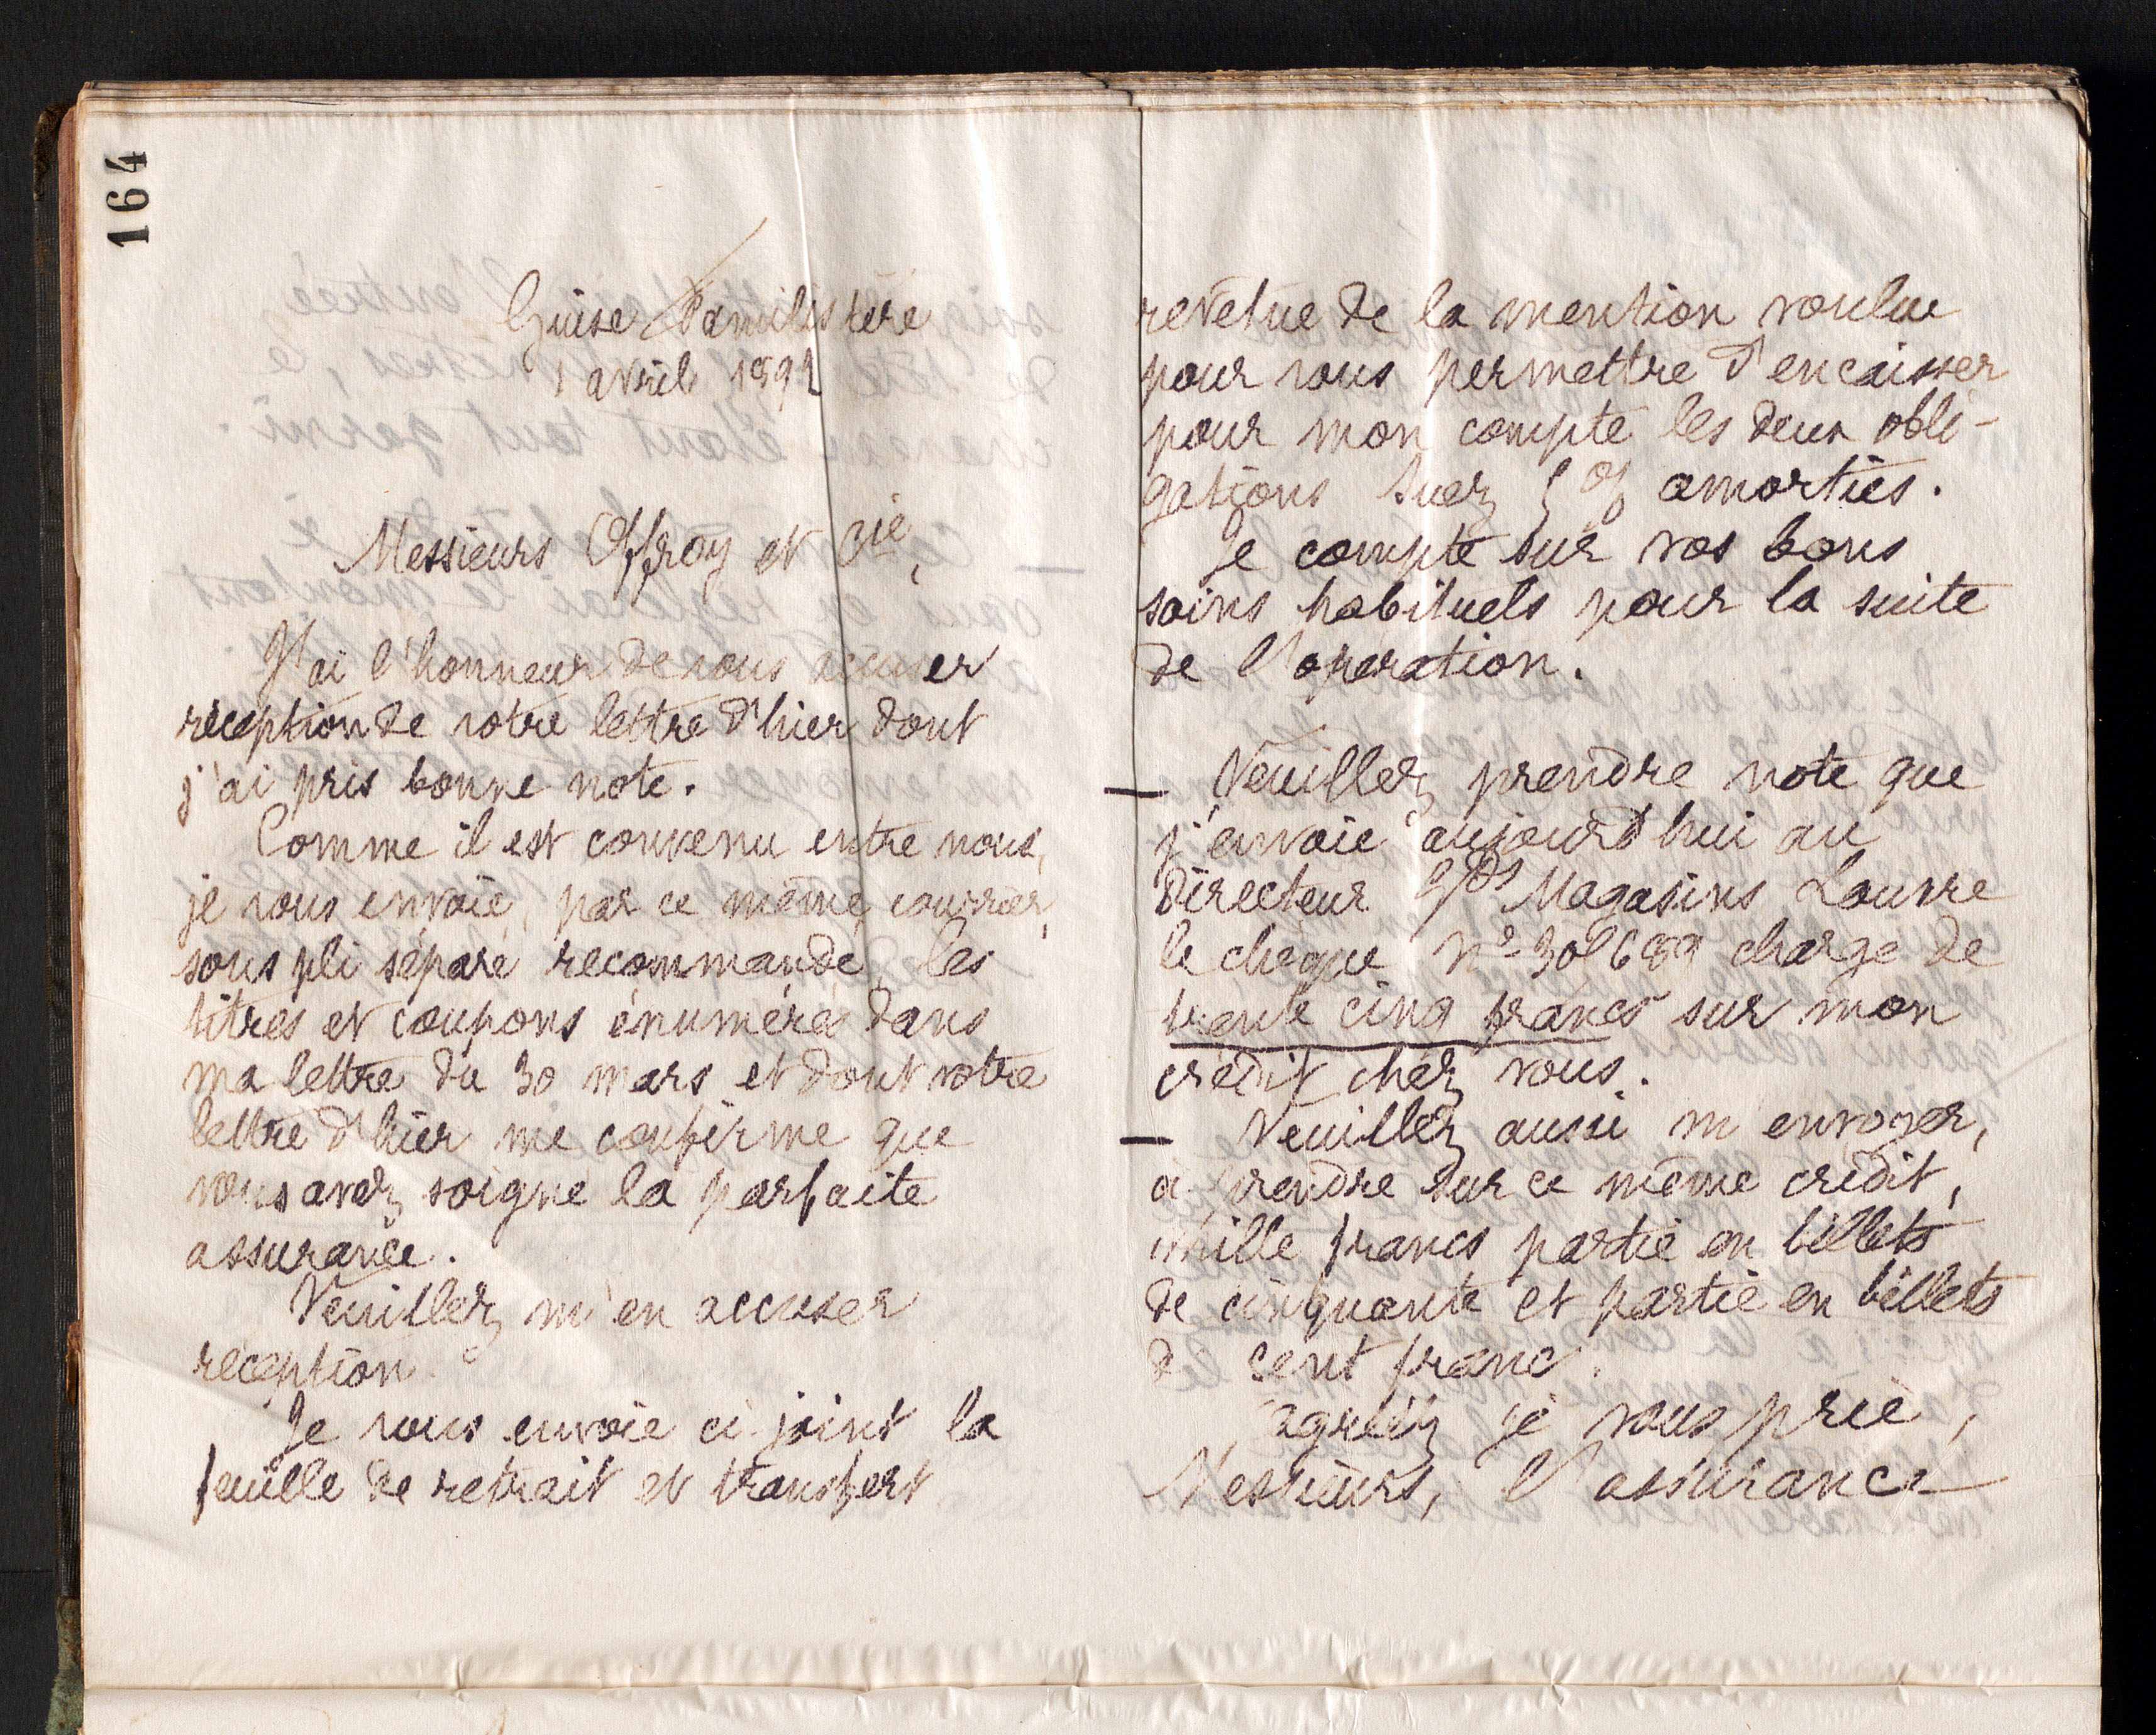 164
Guise Familistère
1 avril 1892
Messieurs Offroy et Cie,
J'ai l'honneur de vous accuser
réception de votre lettre d'hier dont
j'ai pris bonne note.
Comme il est convenu entre nous,
je vous envoie, par ce même courrier,
sous pli séparé recommandé, les
titres et coupons énumérés dans
ma lettre du 30 mars et dont votre
lettre d'hier me confirme que
vous avez soigné la parfaite
assurance.
Veuillez m'en accuser
réception.
Je vous envoie ci-joint la
feuille de retrait et transfert
revêtue de la mention voulue
pour vous permettre d'encaisser
pour mon compte les deux obli-
gations Suez 5 % amorties.
Je compte sur vos bons
soins habituels pour la suite
de l'opération.
— Veuillez prendre note que
j'envoie aujourd'hui au
Directeur Gds Magasins Louvre
le chèque no chargé de
trente cinq francs sur mon
crédit chez vous.
— Veuillez aussi m'envoyer,
à prendre sur ce même crédit,
mille francs partie en billets
de cinquante et partie en billets
de cent francs.
Agréez je vous prie,
Messieurs, l'assurance